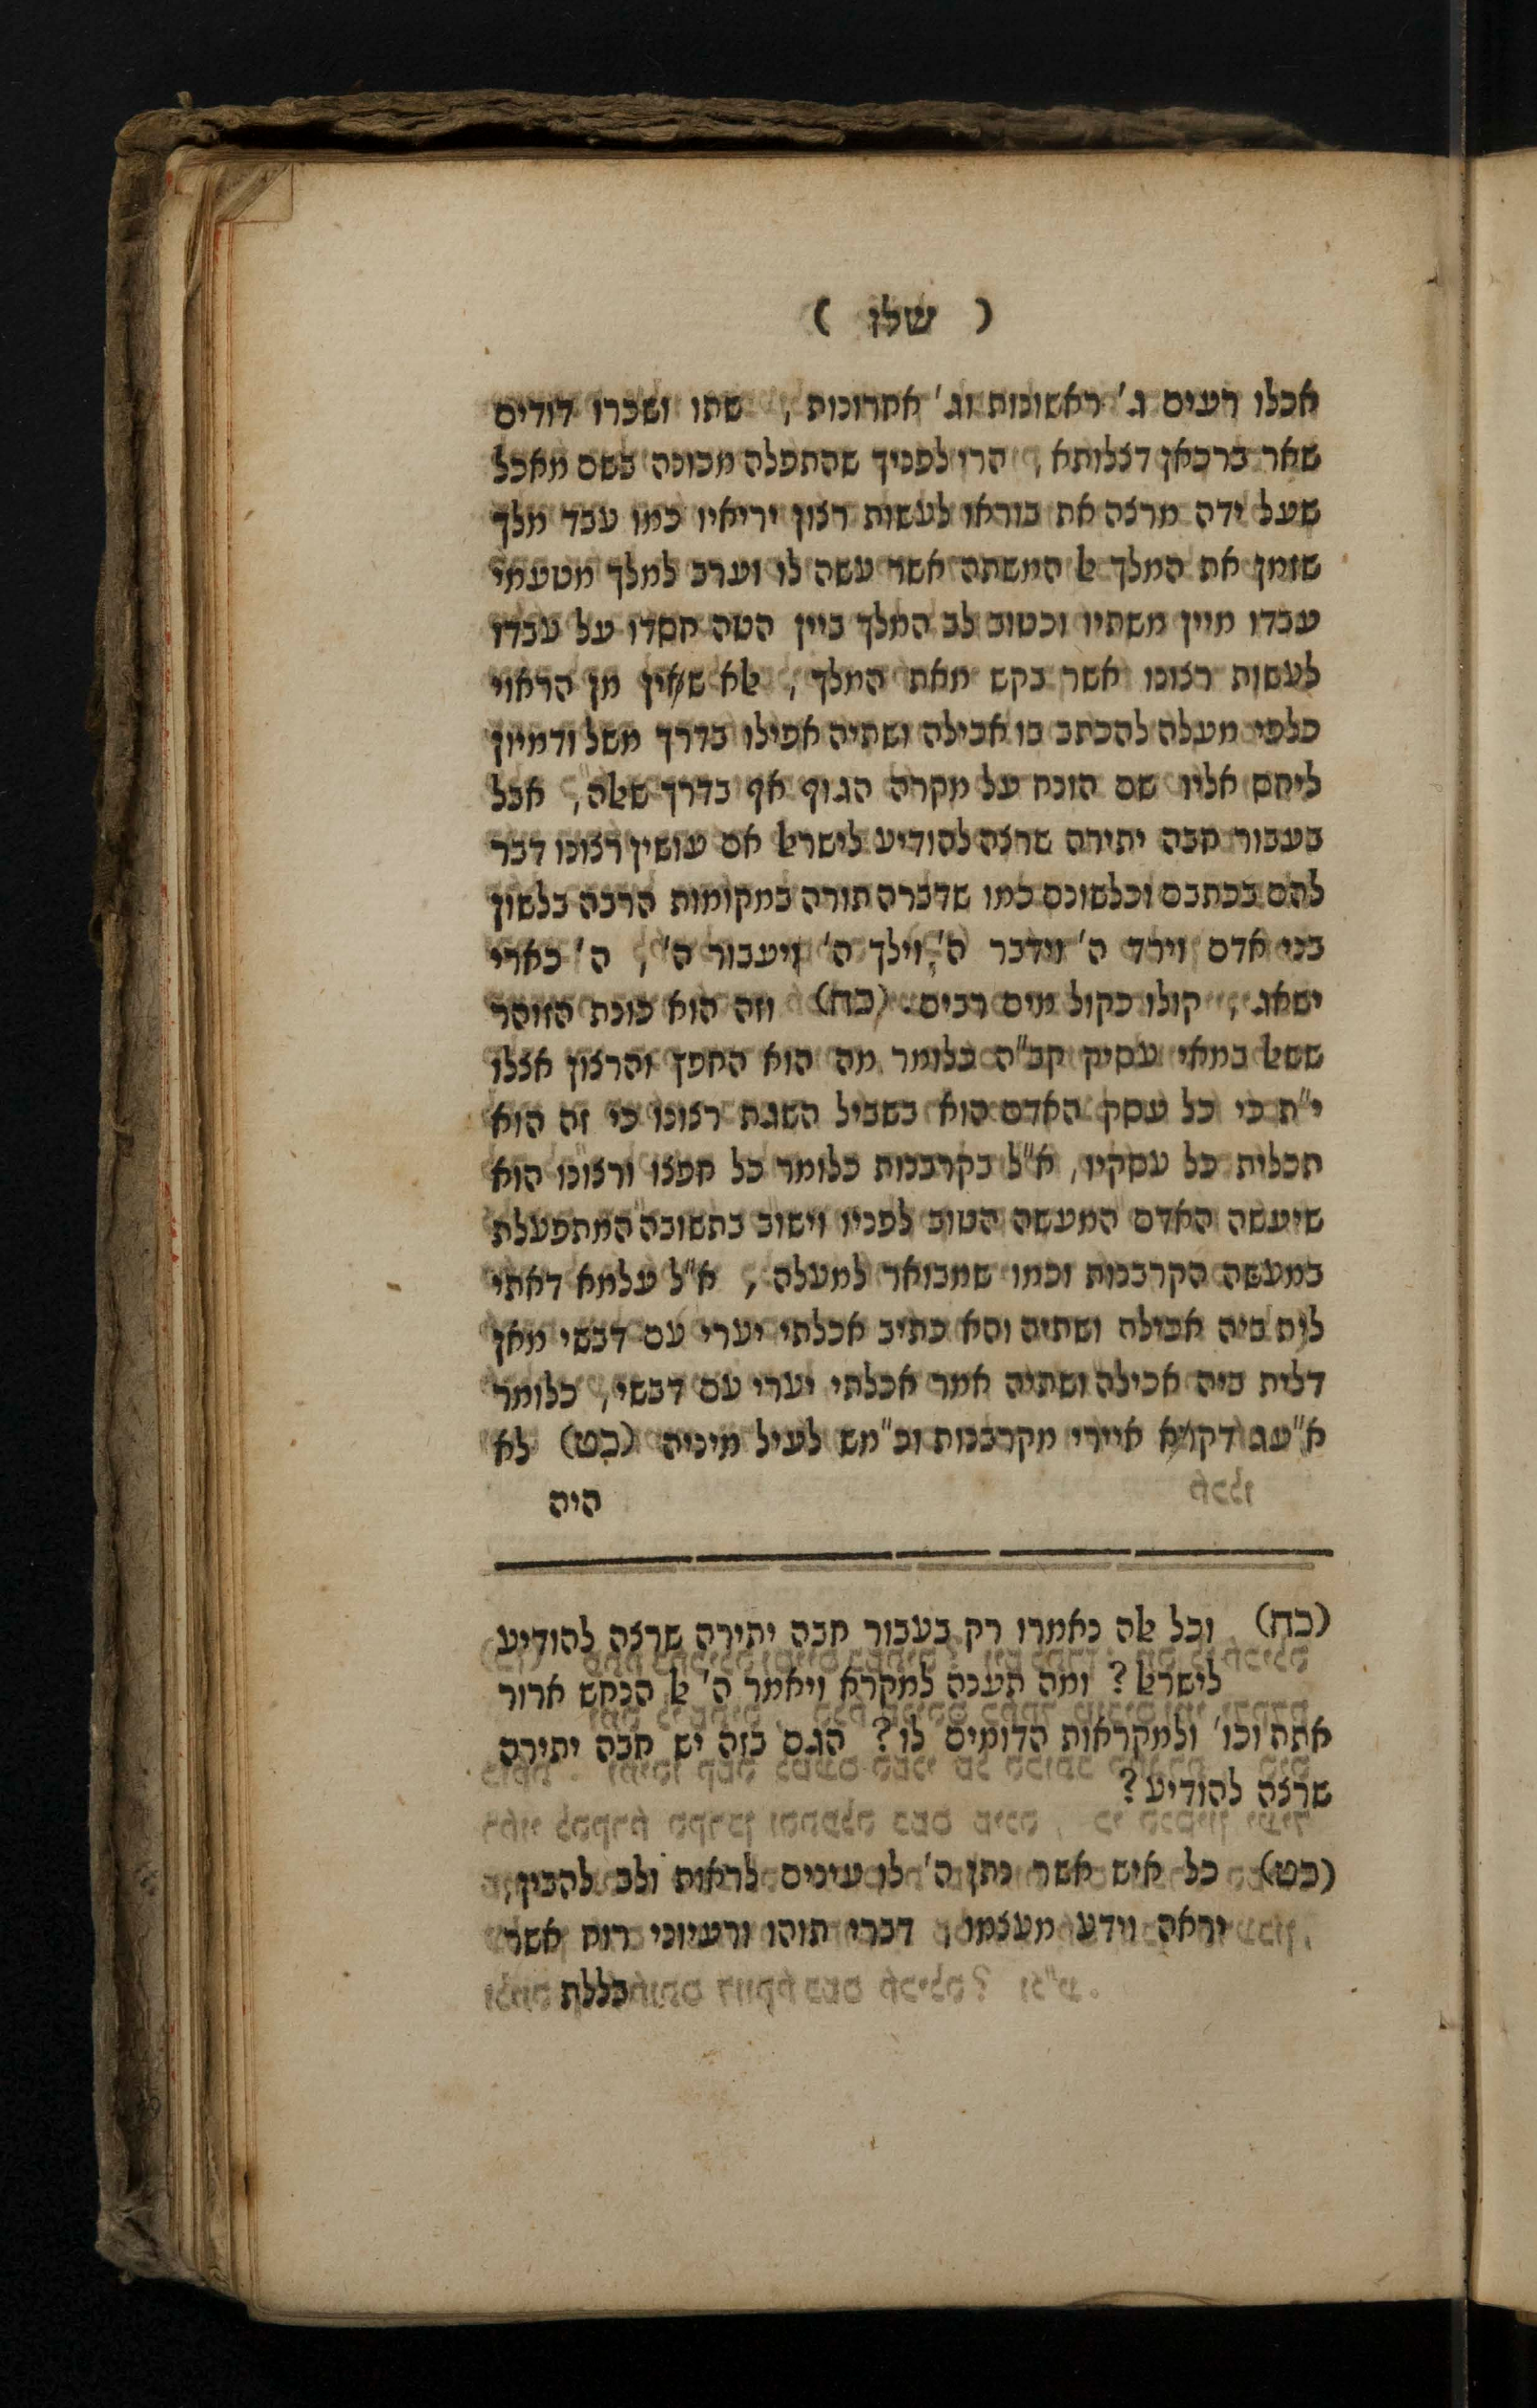 ( שלו )
אכלו רעים ג' ראשונות וג' אחרונות, שתו ושכרו דודים
שאר ברכאן דצלותא, הרי לפניך שהתפלה מכונה בשם מאכל
שעל ידה מרצה את בוראו לעשות רצון יריאיו כמו עבד מלך
שזמן את המלך ﭏ המשתה אשר עשה לו וערב למלך מטעמי
עבדו מיין משתיו וכטוב לב המלך ביין הטה חסדו על עבדו
לעשות רצונו אשר בקש מאת המלך, ﭏא שאין מן הראוי
כלפי מעלה להכתב בו אכילה ושתיה אפילו בדרך משל ודמיון
ליחס אליו שם הונח על מקרה הגוף אף בדרך שﭏה, אבל
בעבור חבה יתירה שרצה להודיע לישרﭏ אם עושין רצונו דבר
להם בכתבם וכלשונם כמו שדברה תורה במקומות הרבה בלשון
בני אדם וירד ה' וידבר ה', וילך ה' ויעבור ה', ה' כארי
ישאג, קולו כקול מים רבים. (כח) וזה הוא כונת הזוהר
ששﭏ במאי עסיק קב"ה כלומר מה הוא החפץ והרצון אצלו
י"ת כי כל עסק האדם הוא בשביל השגת רצונו כי זה הוא
תכלית כל עסקיו, א"ל בקרבנות כלומר כל חפצו ורצונו הוא
שיעשה האדם המעשה הטוב לפניו וישוב בתשובה המתפעלת
במעשה הקרבנות וכמו שמבואר למעלה, א"ל עלמא דאתי
לית ביה אכילה ושתיה והא כתיב אכלתי יערי עם דבשי מאן
דלית ביה אכילה ושתיה אמר אכלתי יערי עם דבשי, כלומר
א"עג דקרא איירי מקרבנות וכ"מש לעיל מיניה (כט) לא
היה
(כח) וכל ﭏה נאמרו רק בעבור חבה יתירה שרצה להודיע
לישרﭏ? ומה תענה למקרא ויאמר ה' ﭏ הנחש ארור
אתה וכו' ולמקראות הדומים לו? הגם בזה יש חבה יתירה
שרצה להודיע?
(כט) כל איש אשר נתן ה' לו עינים לראות ולב להבין,
יראה וידע מעצמו, דברי תוהו ורעיוני רוח אשר
בכללת